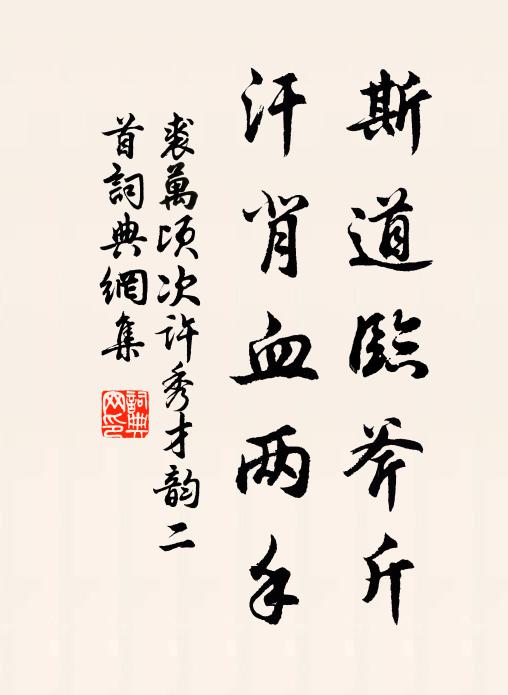 斯道臨斧斤
汗背血两手
裘萬頃次许秀才韵二
首詞典網集
詞典
网印